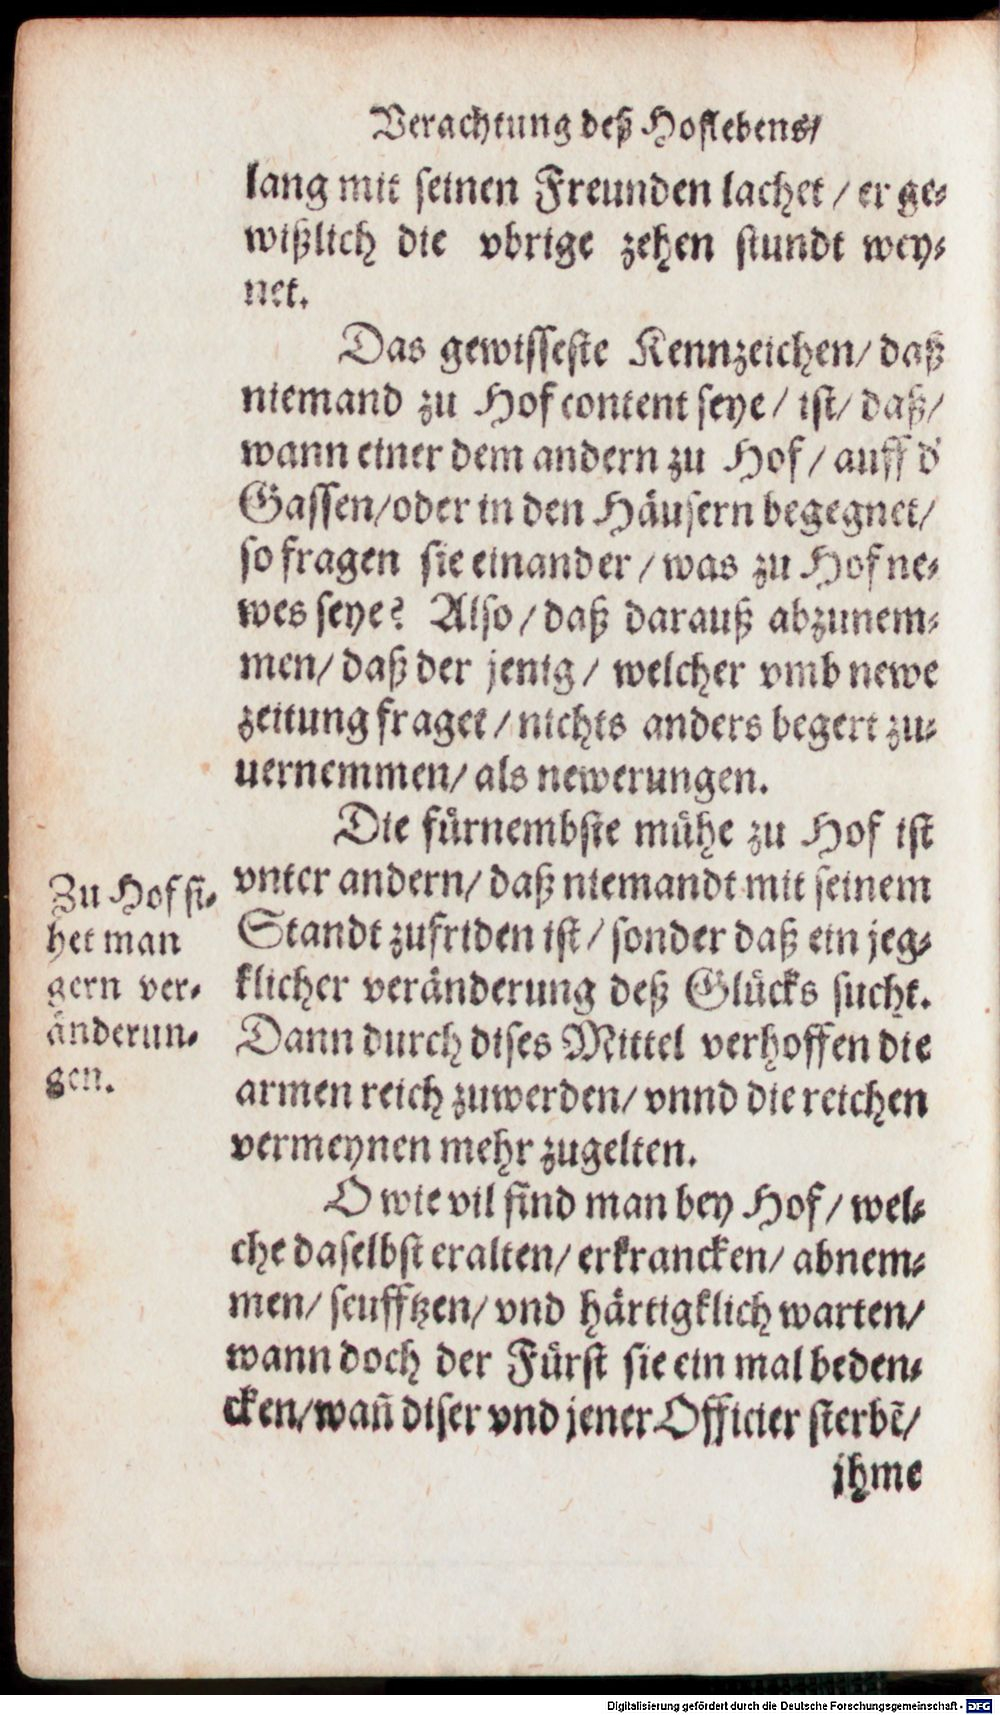 Verachtung deß Hoflebens/
lang mit seinen Freunden lachet / er ge⸗
wißlich die vbrige zehen stundt wey⸗
net.
Das gewisseste Kennzeichen/ daß
niemand zu Hof content seye / ist/ daß/
wann einer dem andern zu Hof / auff d'
Gassen/oder in den Häusern begegnet/
so fragen sie einander / was zu Hof ne⸗
wes seye? Also / daß darauß abzunem⸗
men/ daß der jenig / welcher vmb newe
zeitung fraget / nichts anders begert zu⸗
uernemmen/ als newerungen.
Die fürnembste mühe zu Hof ist
vnter andern/ daß niemandt mit seinem
Standt zufriden ist / sonder daß ein jeg⸗
klicher veränderung deß Glücks sucht.
Dann durch dises Mittel verhoffen die
armen reich zuwerden/ vnnd die reichen
vermeynen mehr zugelten.
Zu Hof si⸗
het man
gern ver⸗
änderun⸗
gen.
O wie vil find man bey Hof / wel⸗
che daselbst eralten/ erkrancken/ abnem⸗
men/ seufftzen/ vnd härtigklich warten/
wann doch der Fürst sie ein mal beden⸗
cken/wañ diser vnd jener Officier sterbē/
jhme
Digitalisierung gefördert durch die Deutsche Forschungsgemeinschaft - DFG